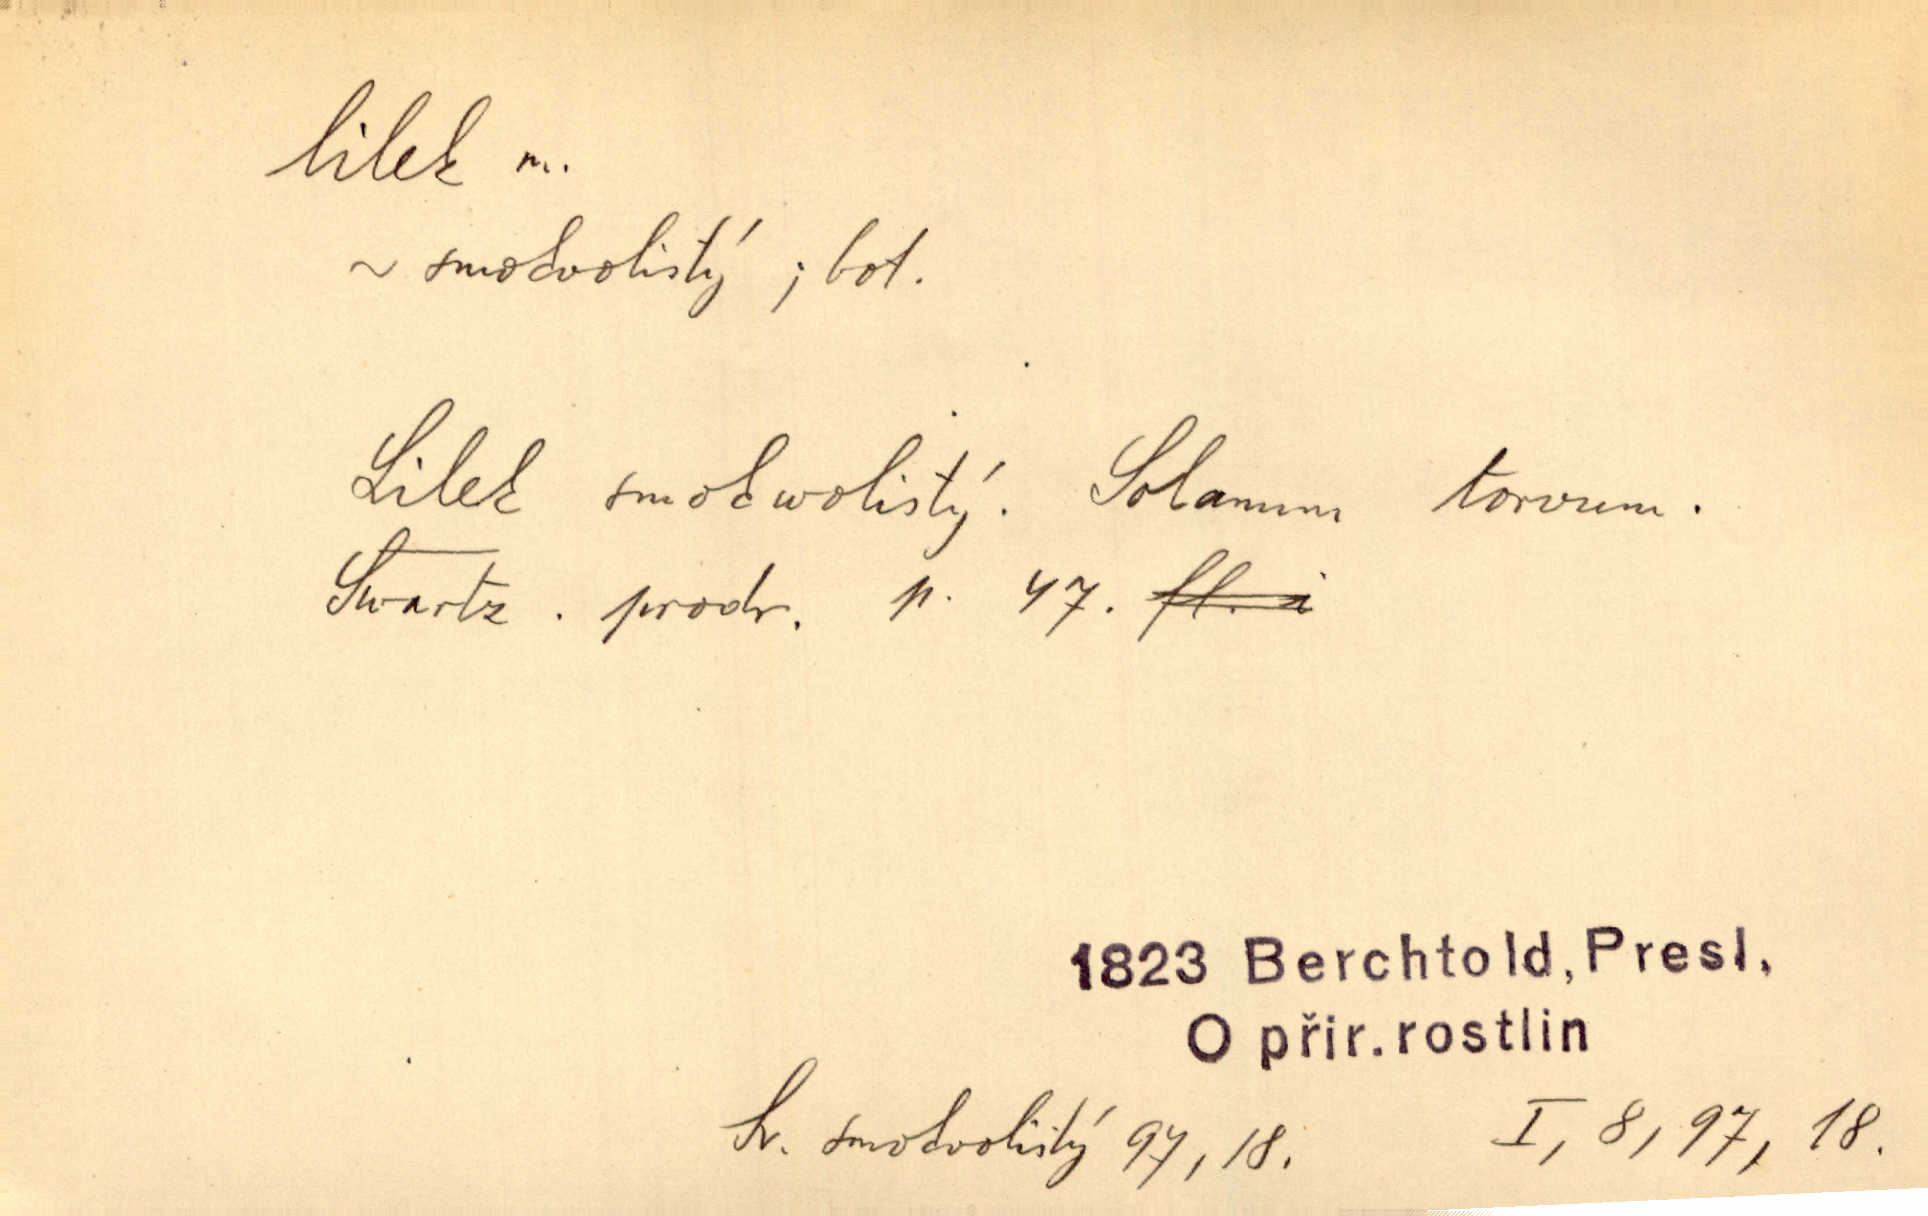 lilek m.
~ smokvolistý ; bot.
Lilek smokwolistý. Solanum torvum.
Swartz. prodr. p. 47. fl. i
1823 Berchtold, Presl,
O přir. rostlin
Sv. smokvolistý 97, 18. I, 8, 97, 18.